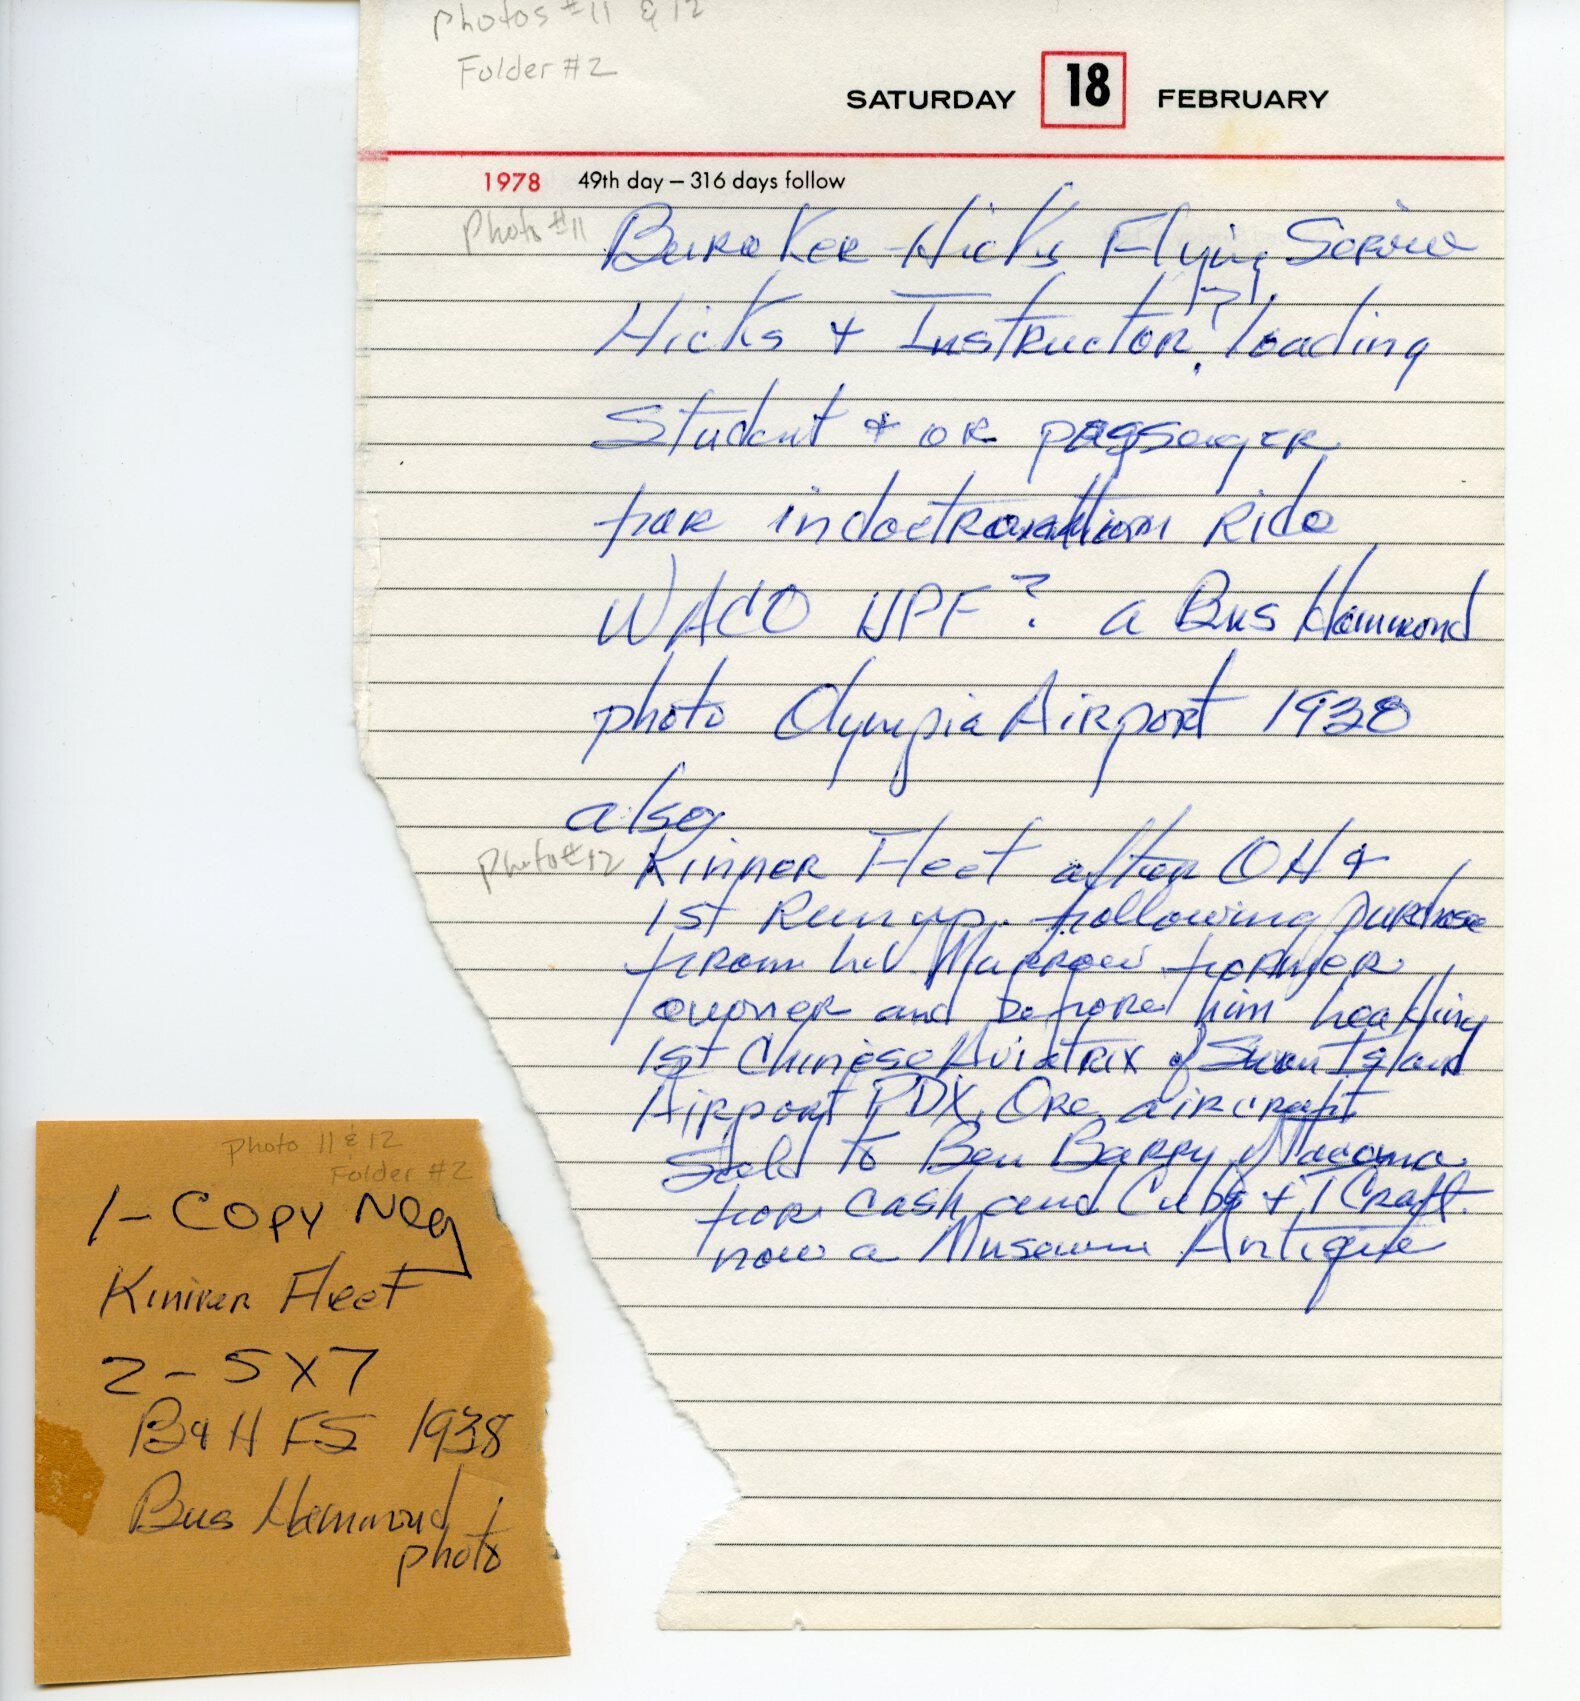 Photos #11 & 12
Folder #2
SATURDAY 18 FEBRUARY
1978 49th day – 316 days follow
Photo #11
Buroker-Hicks Flying Service
Hicks + Instructor ? loading
Student + or passenger
for ride
WACO UPF? a Bus Hammond
photo Olympia Airport 1938
also
Photo #12
Kinner Fleet after OH +
1st Run up. following purchase
from former
owner and before him
1st Chinese Aviatrix of Swan Island
Airport PDX, Ore aircraft
Sold to Ben Barry of Tacoma
for cash and Cubs + T Craft.
now a Museum Antique
Photo 11 & 12
Folder #2
1 - Copy Neg
Kinner Fleet
2 - 5 X 7
B & H FS 1938
Bus Hammond
photo